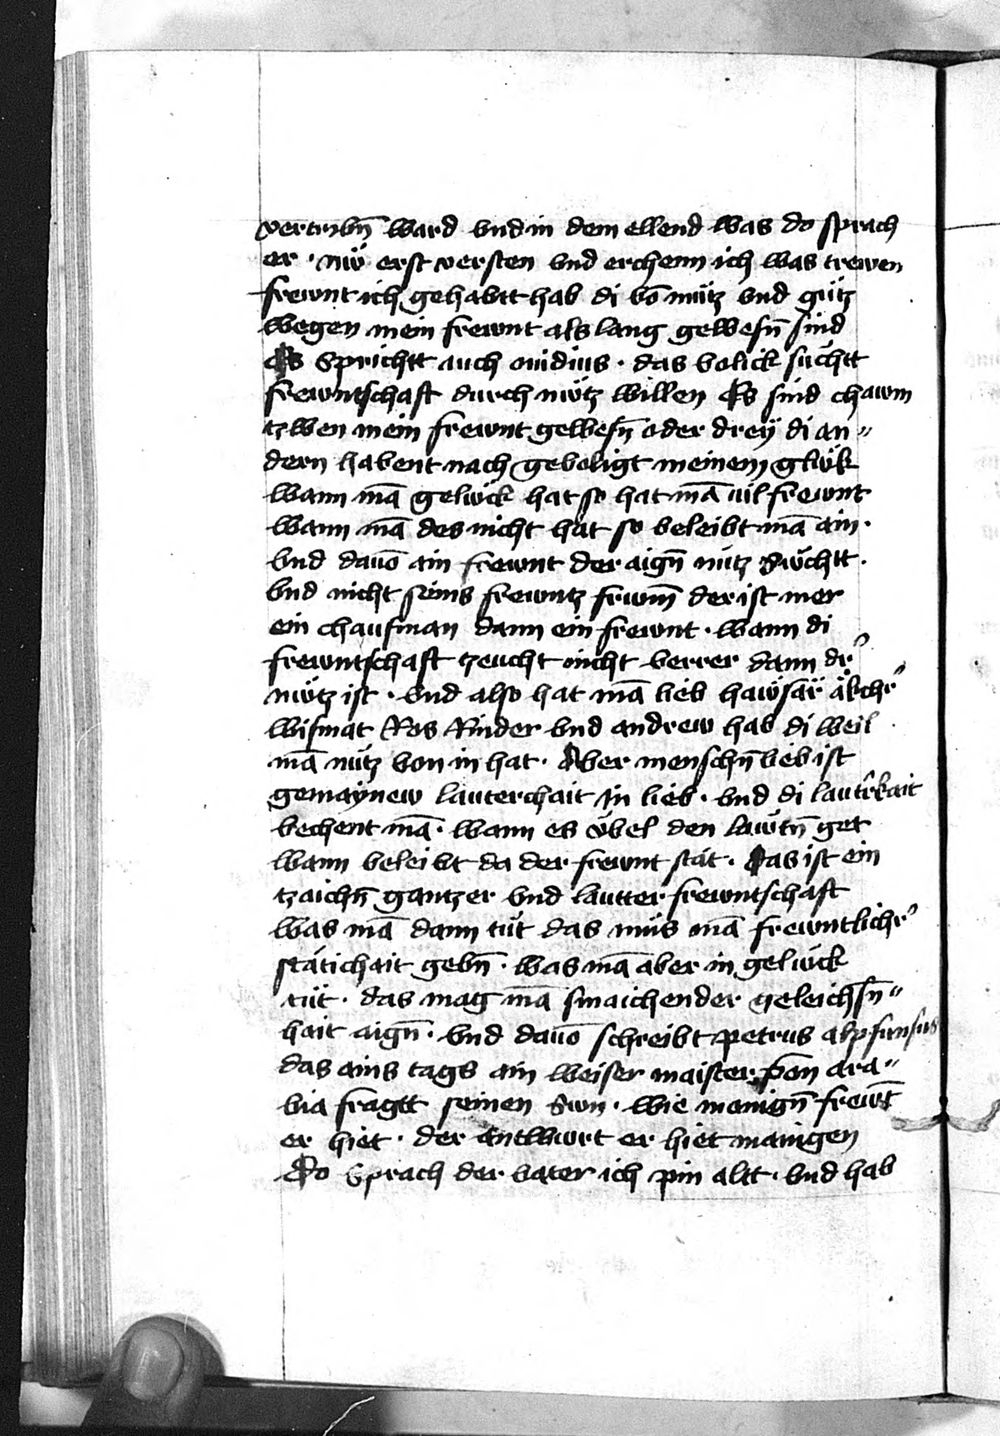 vertribn̄ ward vnd in dem ellend was do sprach
er · nw̋ erst versten vnd erchenn ich was trewen
frewnt ich gehabtt hab di vō nütz vnd gütz
wegen mein frewnt als lang gewesn̄ sind
Es Sprichtt auch ouidius · das volick süchtt
frewntschaft durch nw̋tz willen Es sind chawm
tzwen mein frewnt gewesn̄ oder dreÿ di an〃
dern habent nach geuoligt meinem glük
wann mā gelück hat so hat mā vil frewnt
wann mā des nicht hat so beleibt mā ain ·
vnd dauō ain frewnt der aign̄ nütz Süchtt ·
vnd nicht seins frewntz frwm̄ der ist mer
ein chaufman dann ein frewnt · wann di
frewntschaft tzeucht nicht verrer dann dr̄
nw̋tz ist · vnd also hat mā lieb hawsär äkchr̄
wismat Ros Rinder vnd andrew hab di weil
mā nütz von in hat · Aber menschn̄ lieb ist
gemaÿnew lauterchait in lieb · vnd di lautr̄kait
bechent mā · wann es v̋bel den lawtn̄ get
wann beleibt da der frewnt stät · Das ist ein
tzaichn̄ gantzer vnd lautter frewntschaft
was mā dann tüt das müs mā frewntlichr̄
stätichait gebn̄ · was mā aber in gelück
tüt · das mag mā smaichender geleichsn̄〃
hait aign̄ · vnd dauō schreibt petrus alpfunsus
das ains tags ain weiser maister von ara〃
bia fragtt seinen Swn · wie manign̄ frewt̄
er hiet · der antwurt er hiet manigen
Do Sprach der vater ich pin altt · vnd hab